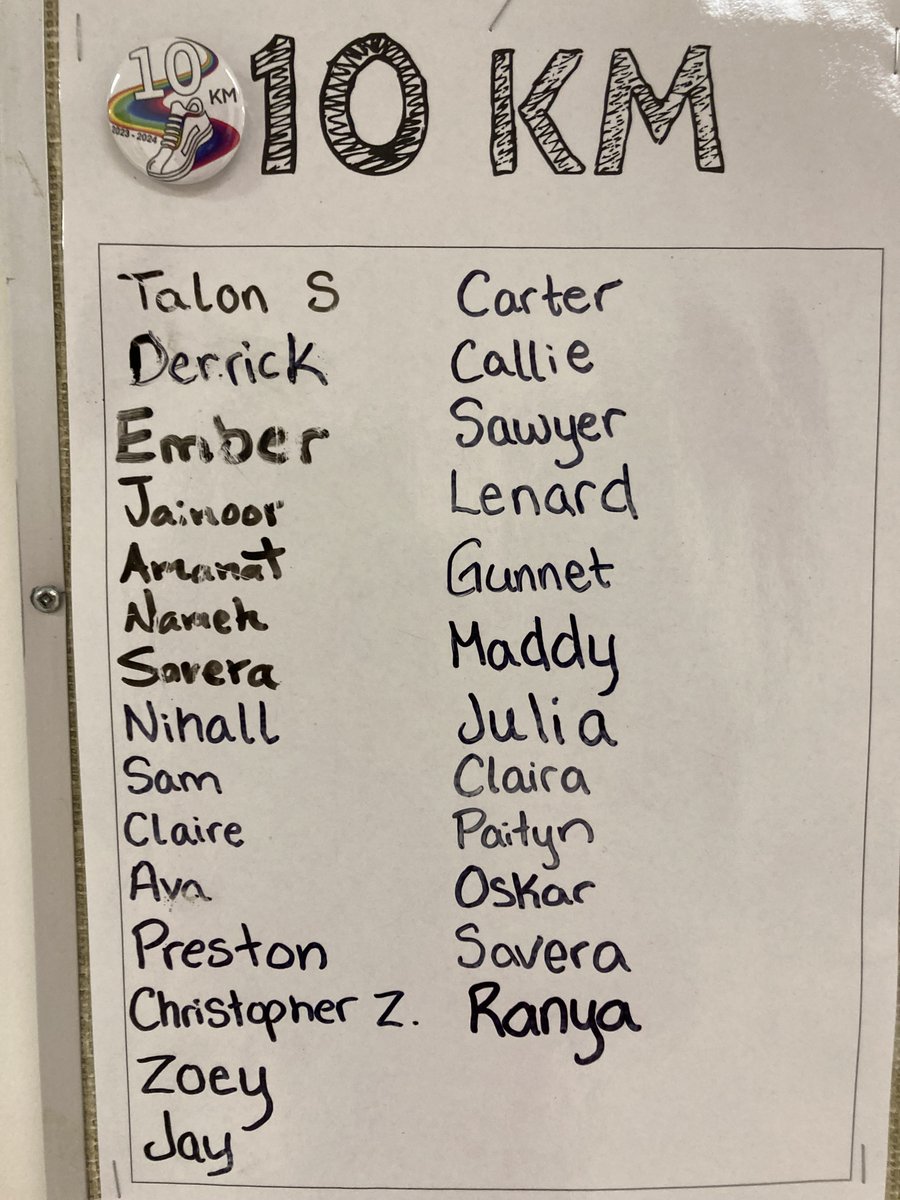 10
KM
2023 - 2024
10 KM
Talon S
Derrick
Ember
Jainoor
Amanat
Savera
Nihall
Sam
Claire
Ava
Preston
Christopher Z.
Zoey
Jay
Carter
Callie
Sawyer
Lenard
Gunnet
Maddy
Julia
Claira
Paityn
Oskar
Savera
Ranya